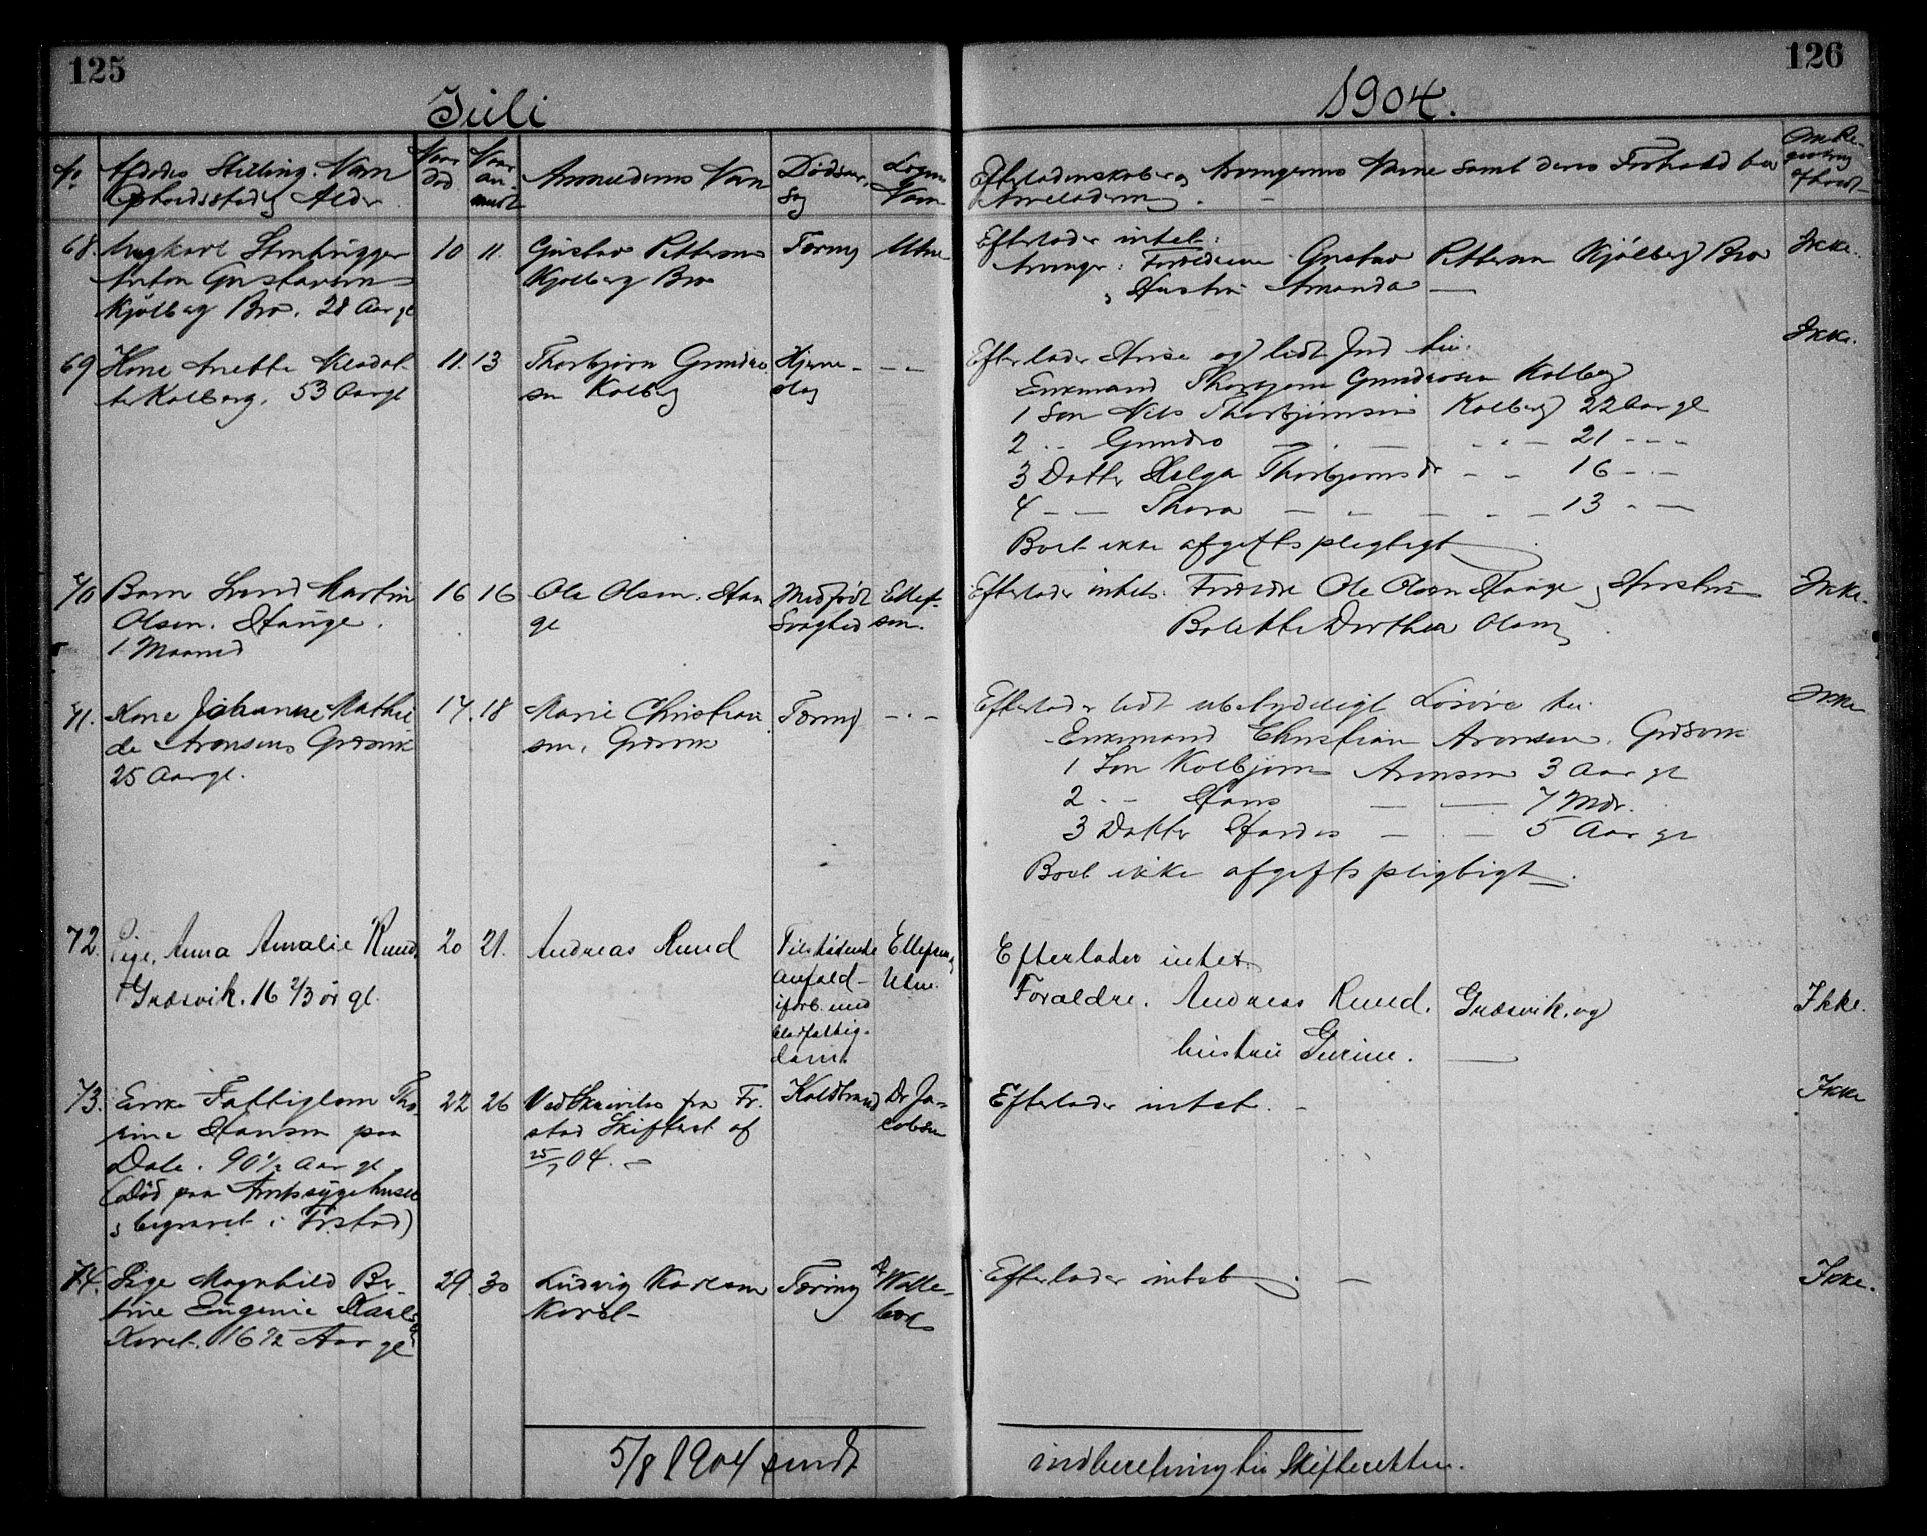 125
126
Juli
1904.
No
Afdødes Stilling. Navn
Opholdssted og Alder
Naar
død
Naar
an-
meldt
Anmelderens Navn
Dødsaar-
sag
Lægens
Navn
Efterladenskaber og Arvingernes Navne samt deres Forhold til
Arveladeren
68. Ungkarl Stenhugger
Anton Gustavsen
Kjølberg Bro. 28 Aar gl
10 11.
Gustav Pettersen
Kjølberg Bro
Tæring
Utne
Efterlader intet:
Arvinger: Forældrene Gustav Pettersen Kjølberg Bro
og Hustru Amanda —
Ikke.
69 Kone Anette
Kolberg. 53 Aar gl
11. 13
Thorbjørn Gundro
sen Kolberg
Hjerne-
slag
- - -
Efterlader Huse og lidt Jnd til:
Enkemand Thorbjørn Gundrosen Kolberg
1 Søn Nils Thorbjørnsen Kolberg 22 Aar gl
2 - - Gundro — - — - - — 21 - - -
3 Datter Helga Thorbjørnsdr - - 16 - - -
4 - — Thora — - — - — 13 - —
Boet ikke afgiftspligtigt
Ikke.
70 Barn Martin
Olsen. Hauge.
1 Maaned
16 16
Ole Olsen. Hau
ge
Medfødt
Svaghed
Ellef-
sen.
Efterlader intet. Forældre Ole Olsen Hauge og Hustru
Bolette Dorthea Olsen
Ikke.
71. Kone Johanne Mathil
de Aronsen Græsvik
25 Aar gl.
17. 18
Marie Christian
sen, Græsvik
Tæring
- . -
Efterlader lidt ubetydeligt Løsøre til:
Enkemand Christian Aronsen. Græsvik
1 Søn Kolbjørn Aronsen 3 Aar gl
2 - - Hans — — 7 Mdr.
3 Datter Hardis — - — 5 Aar gl
Boet ikke afgiftspligtigt.
Ikke
72. Pige, Anna Amalie Ruud
Græsvik. 16 2/3 år gl.
20 21.
Andreas Ruud
Tilstødende
anfald
iforb. med
blodfattig-
dom.
Ellefsen og
Utne.
Efterlader intet.
Forældre. Andreas Ruud. Græsvik. og
hustru Gurine. —
Ikke.
73. Enke Fattiglem Tho
rine Hansen paa
Dale. 90 1/2 Aar gl
(Død paa Amtssygehuset
og begravet i Frstad)
22 26
Ved Skrivelse fra Fr.
stad Skifteret af
25/7 04. —
Koldbrand
Dr Ja-
cobsen
Efterlader intet. -
Ikke
74. Pige Magnhild Be-
tine Eugenie Karlsen
Koret. 16 1/2 Aar gl
29. 30
Ludvig Karlsen
Koret
Tæring
Dr Walle-
boe
Efterlader intet. —
Ikke.
5/8 1904 sendt
indberetning til Skifteretten.